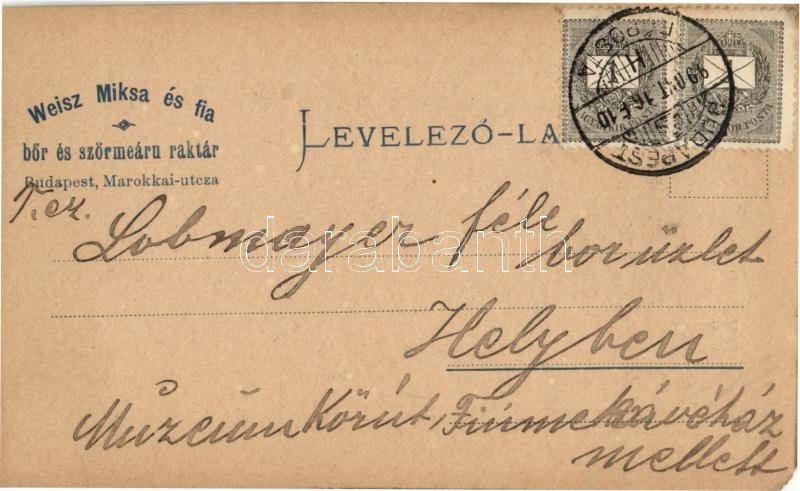 Weisz Miksa és fia
bőr és szörmeáru raktár
Budapest, Marokkai-utcza
LEVELEZŐ-LA
BUDAPEST
T. cz.
Lobmayer féle
bor üzlet
Helyben
Muzeum Körút, Fiume kávéház
mellett
darabanth